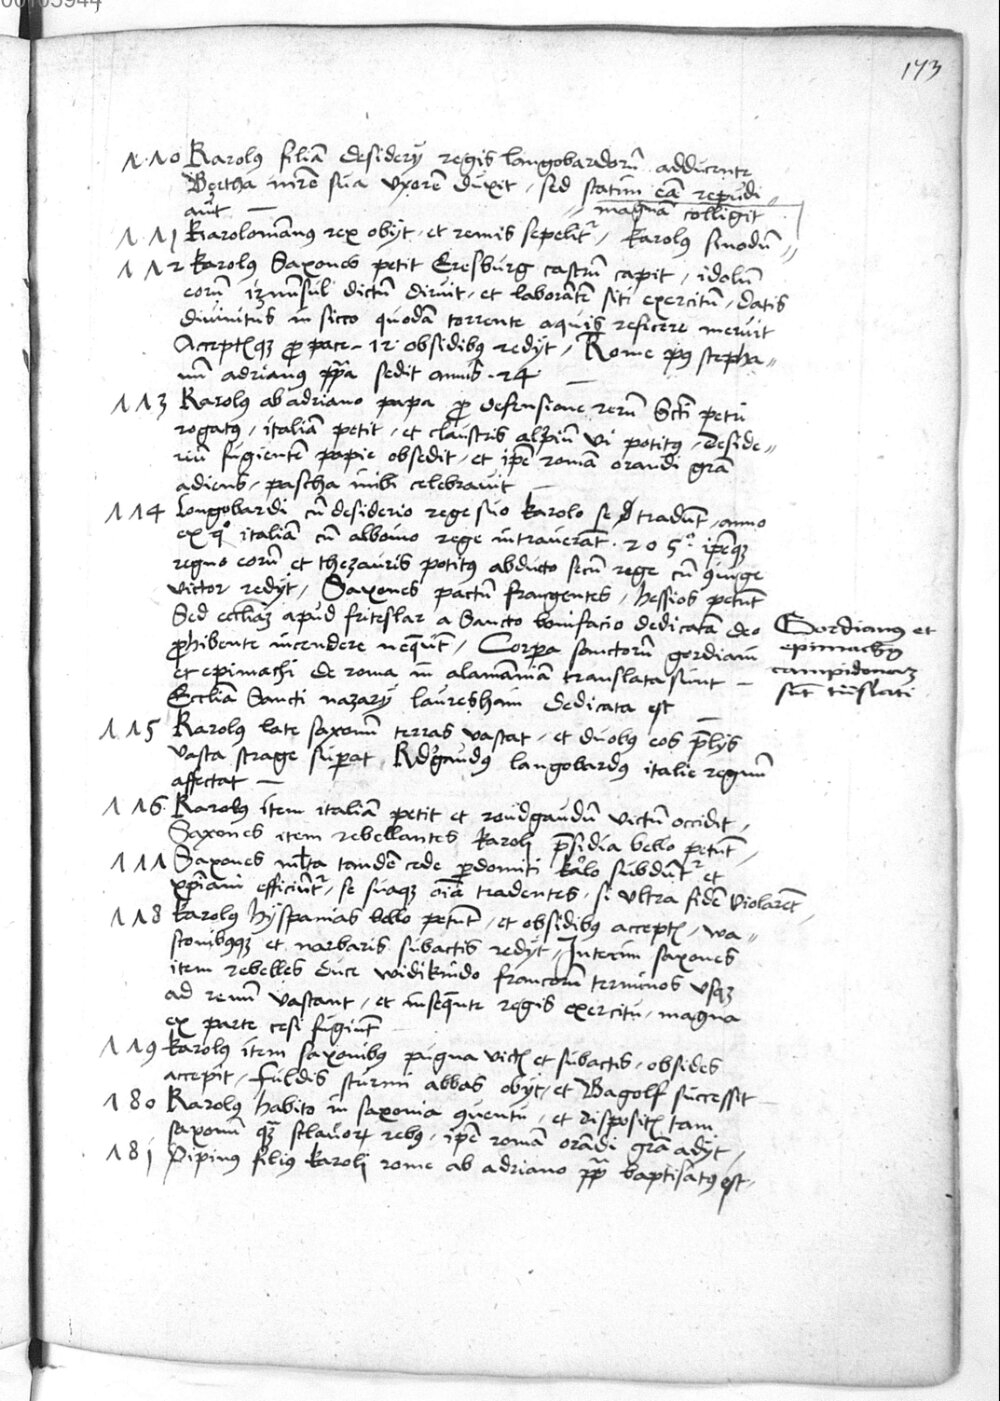 00103944
173
770 Karolus filiā desidery regis langobardorū adducente
Bertha mrē sua uxorē duxit, sed statim eā repudi-
auit —
magnā colligit
771 Karolomānus rex obyt, et remis sepelit᷑, Karolus sinodū
772 Karolus Saxones petit Eresburg castrū capit, idolū
eorū irmūsul dictū diruit, et laborātē siti exercitū, datis
diuinitus in sicco quodā torrente aquis reficere meruit
Acceptisqꝫ ꝓ pace 12 obsidibus redyt, Rome pus stepha-
nū adrianus ppa sedit annis 24 —
773 Karolus ab adriano papa ꝓ defensione rerū Scti petri
rogatus, italiā petit, et claustris alpiū vi potitus, deside-
riū fugientē papie obsedit, et ipe romā orandi grā
adiens, pascha inibi celebrauit —
774 Longobardi cū desiderio rege suo karolo se tradūt, anno
ex qo italiā cū alboino rege intrauerāt 205° ipeqꝫ
regno eorū et thezauris potitus abducto secū rege cū ꝯiuge
victor redyt, Saxones pactū frangentes, hessios petūt
Sed eccliaꝫ apud friteslar a Sancto bonifacio dedicatā deo
ꝓhibente incendere neqūt, Corpa sanctorū gordiani
et epimachi de roma in alamāniā translata sunt —
Eccliā Sancti nazary laureshaim dedicata est —
Gordianus et
epimachus
campidonaꝫ
sūt trāslati
775 Karolus late saxonū terras vastat, et duobus eos p̄lys
vasta strage supat, Rdgaudus langobardus italie regnū
affectat —
776 Karolus item italiā petit et roudgaudū victū occidit,
Saxones item rebellantes karoli p̄sidia bello petūt,
777 Saxones mlta tandē cede ꝑdomiti karlo subdūt᷑ et
xp̄iani efficiūt᷑, se suaqꝫ oīa tradentes, si ultra fidē violarēt,
778 Karolus hyspanias bello petūt, et obsidibus acceptis, wa-
sconibusqꝫ et narbaris subactis redyt, Interim saxones
item rebelles duce widikindo francorū terminos usqꝫ
ad renū vastant, et insequēte regis exercitu, magna
ex parte cesi fugiūt —
779 Karolus item saxonibus pugna victis et subactis, obsides
accepit, fuldis sturmi abbas obyt, et Bagolf successit —
780 Karolus habito in saxonia ꝯuentu, et dispositis tam
saxonū qꝫ sclauorꝝ rebus, ipe romā orādi grā adyt,
781 Pipinus filius karoli rome ab adriano pp baptisatus est,